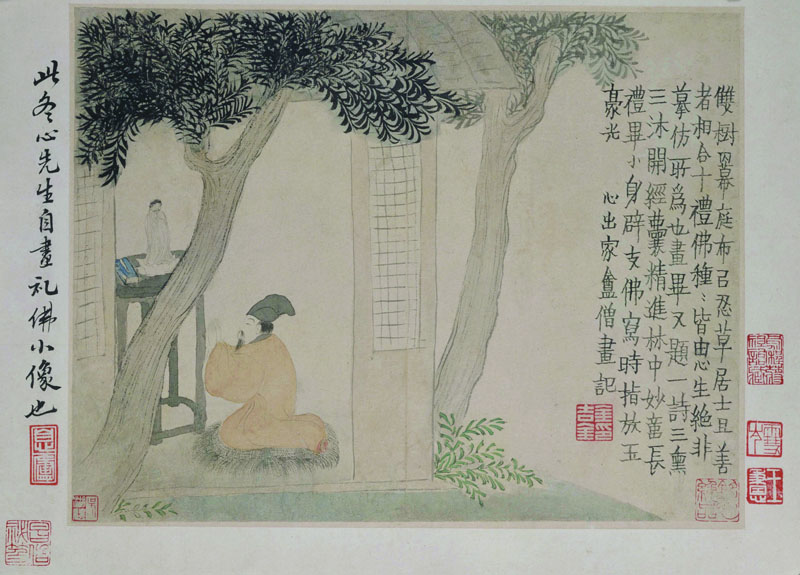 雙樹幕庭布㠯忍草居士且善
者相合十禮佛種〻皆由心生絕非
摹仿所爲也畫畢又題一詩三熏
三沐開經囊精進林中妙長
禮畢小身辟支佛寫時指放玉
豪光 心出家盦僧畫記
此冬心先生自畫礼佛小像也